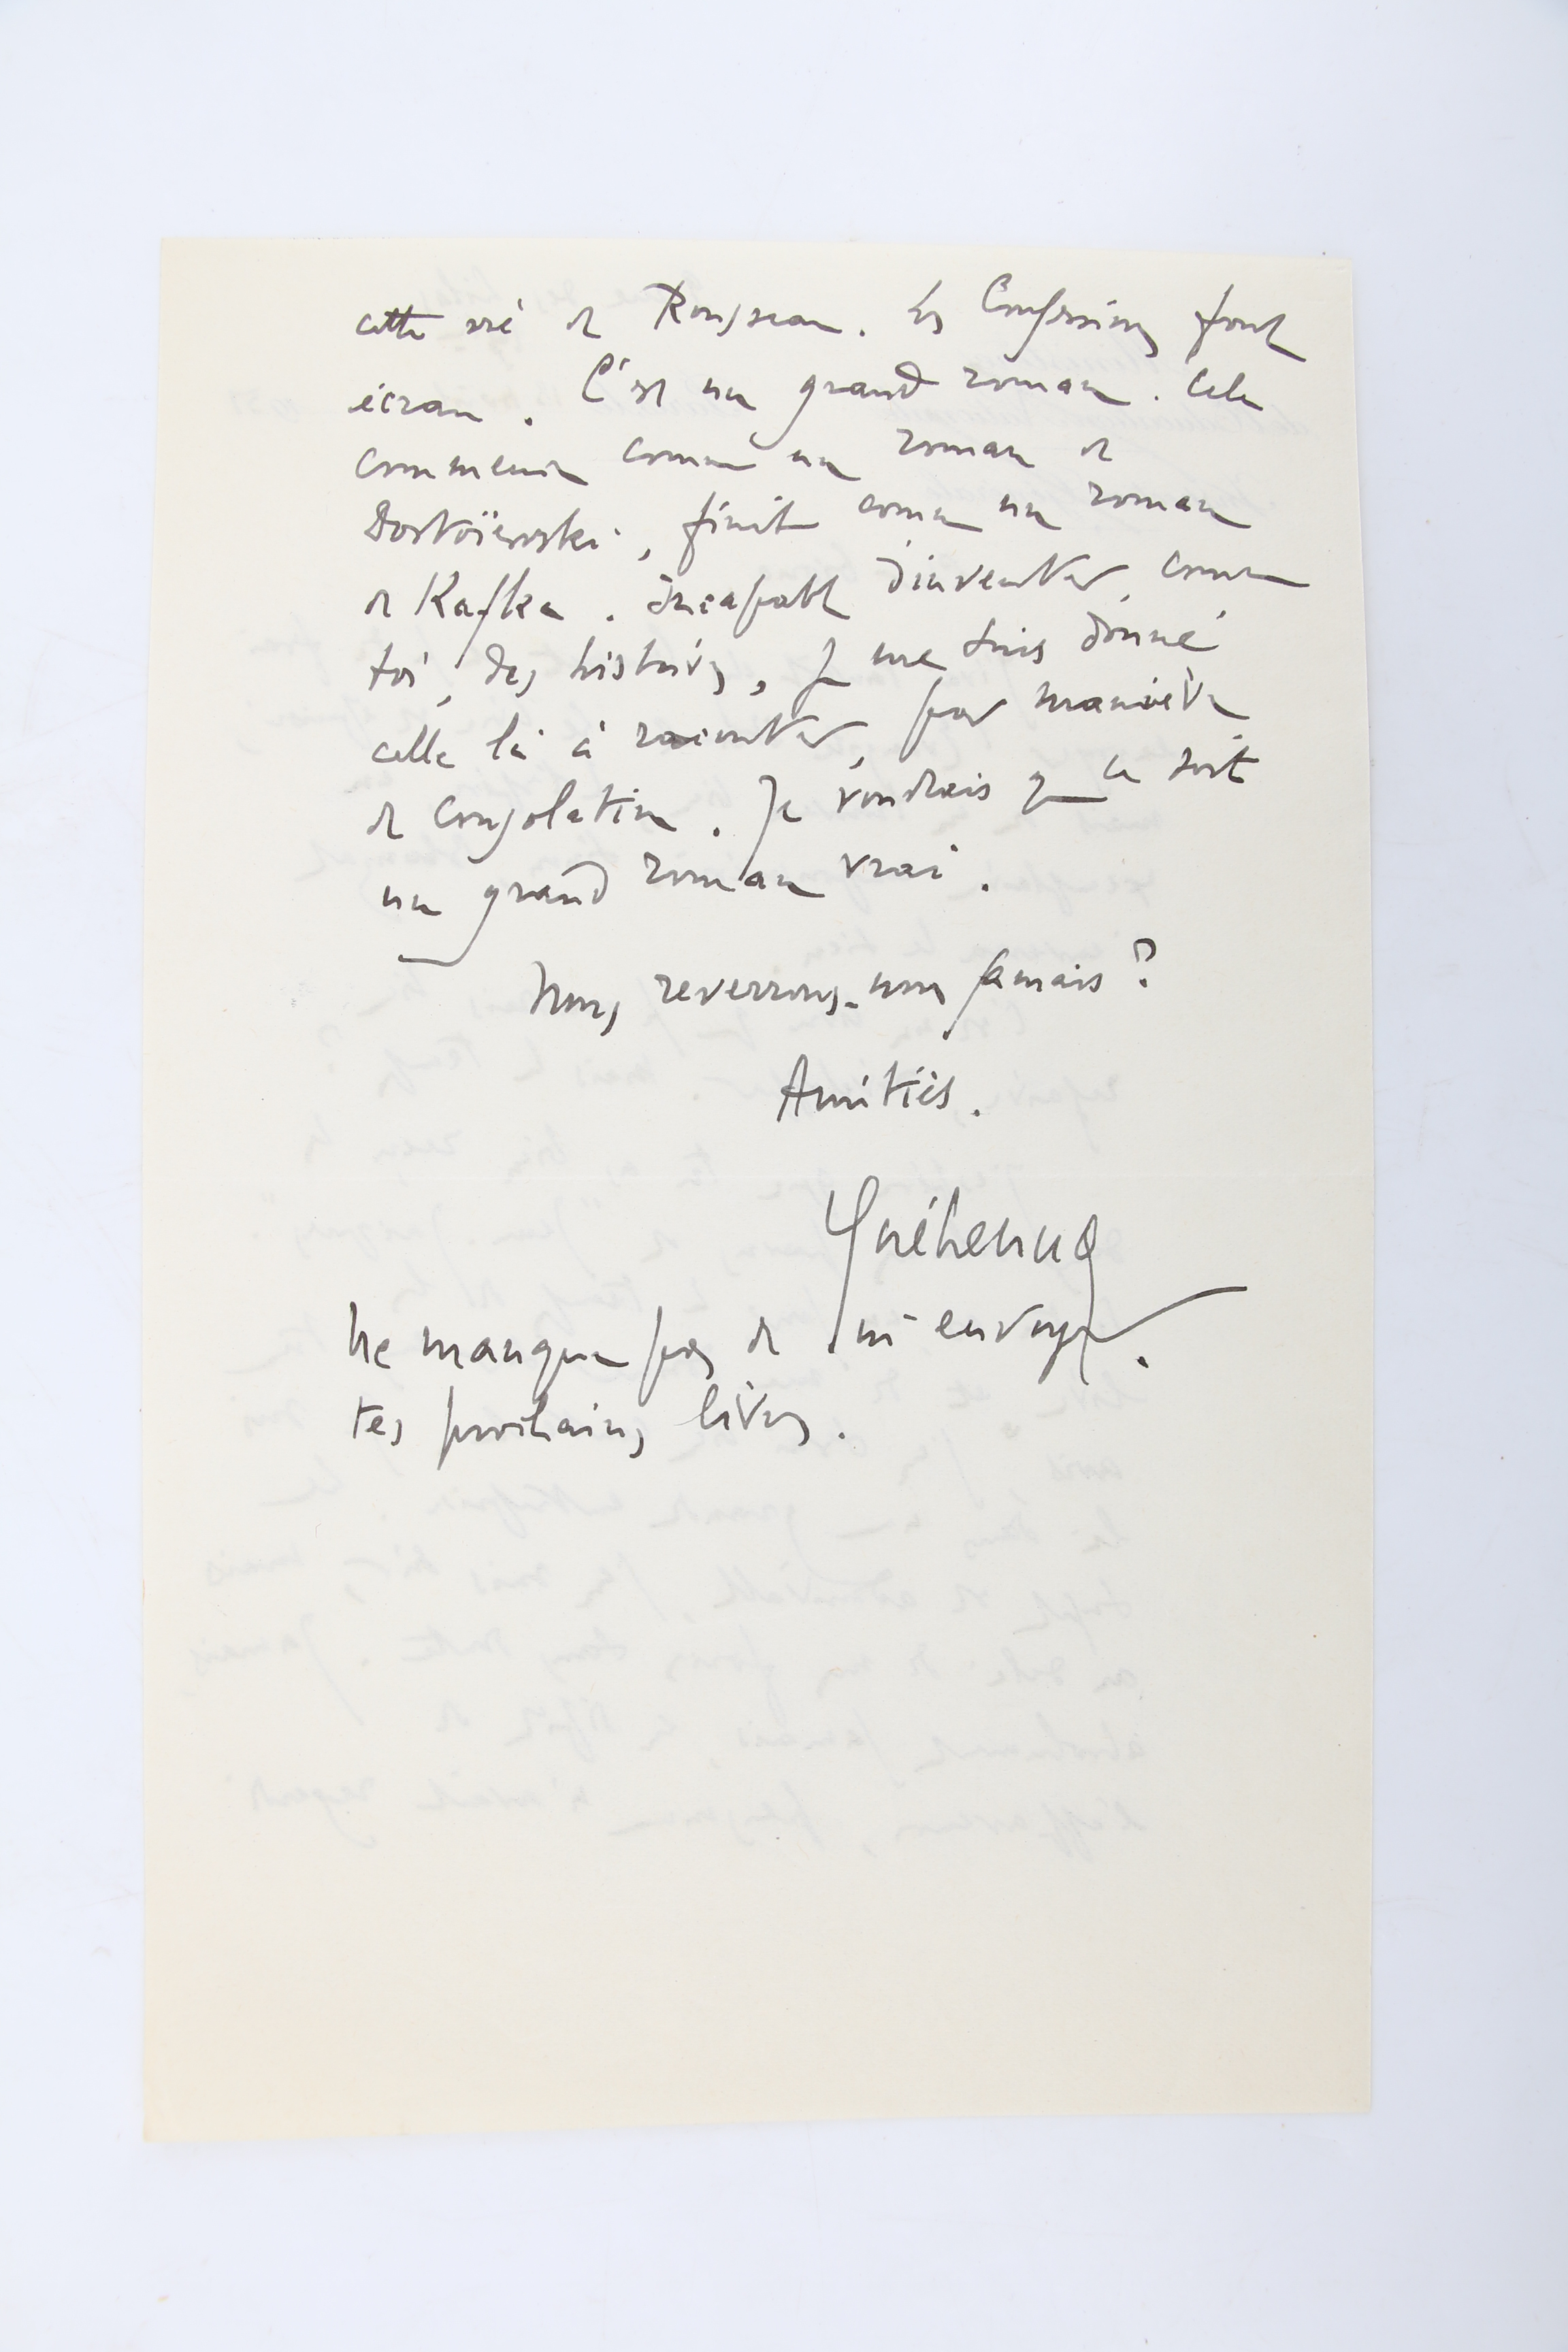 cette vie de Rousseau. Les Confessions font
écran. C'est un grand roman. Cela
commence comme un roman de
Dostoïewski, finit comme un roman
de Kafka. Incapable d'inventer, comme
toi, des histoires, je me suis donné
celle là à raconter, par manière
de consolation. Je voudrais que ce soit
un grand roman vrai.
Nous reverrons-nous jamais ?
Amitiés.
Guéhenno
Ne manque pas de m'envoyer
tes prochains livres.